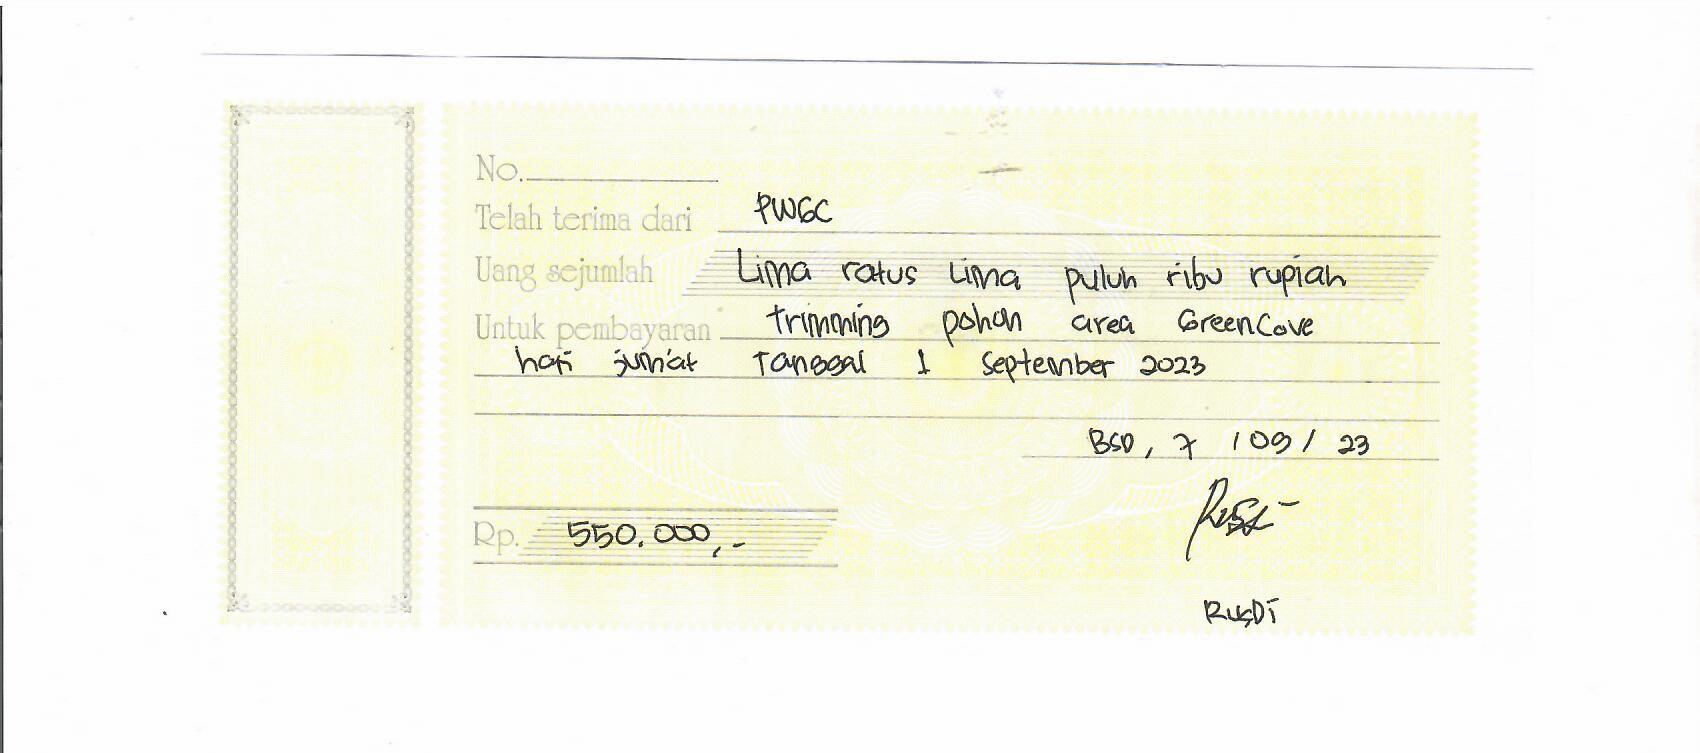 No.
Telah terima dari PWGC
Uang sejumlah Lima ratus Lima puluh ribu rupiah
Untuk pembayaran trimming pohon area GreenCove
hari jum'at Tanggal 1 September 2023
BSD, 7 / 09 / 23
Rp. 550.000,-
RUSDI